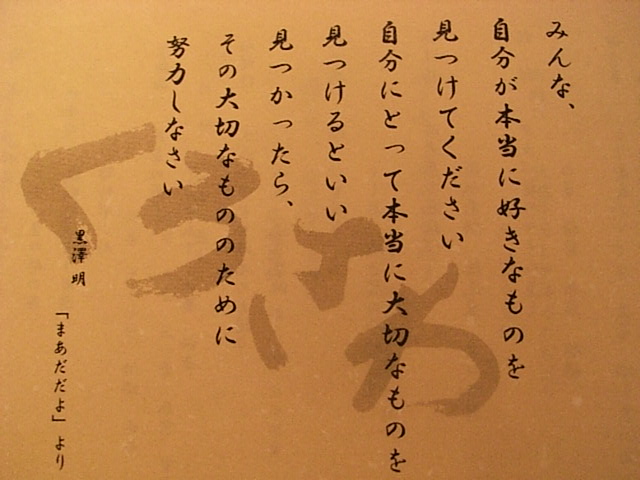 みんな、
自分が本当に好きなものを
見つけてください
自分にとって本当に大切なものを
見つけるといい
見つかったら、
その大切なもののために
努力しなさい
黒澤 明
「まあだだよ」より